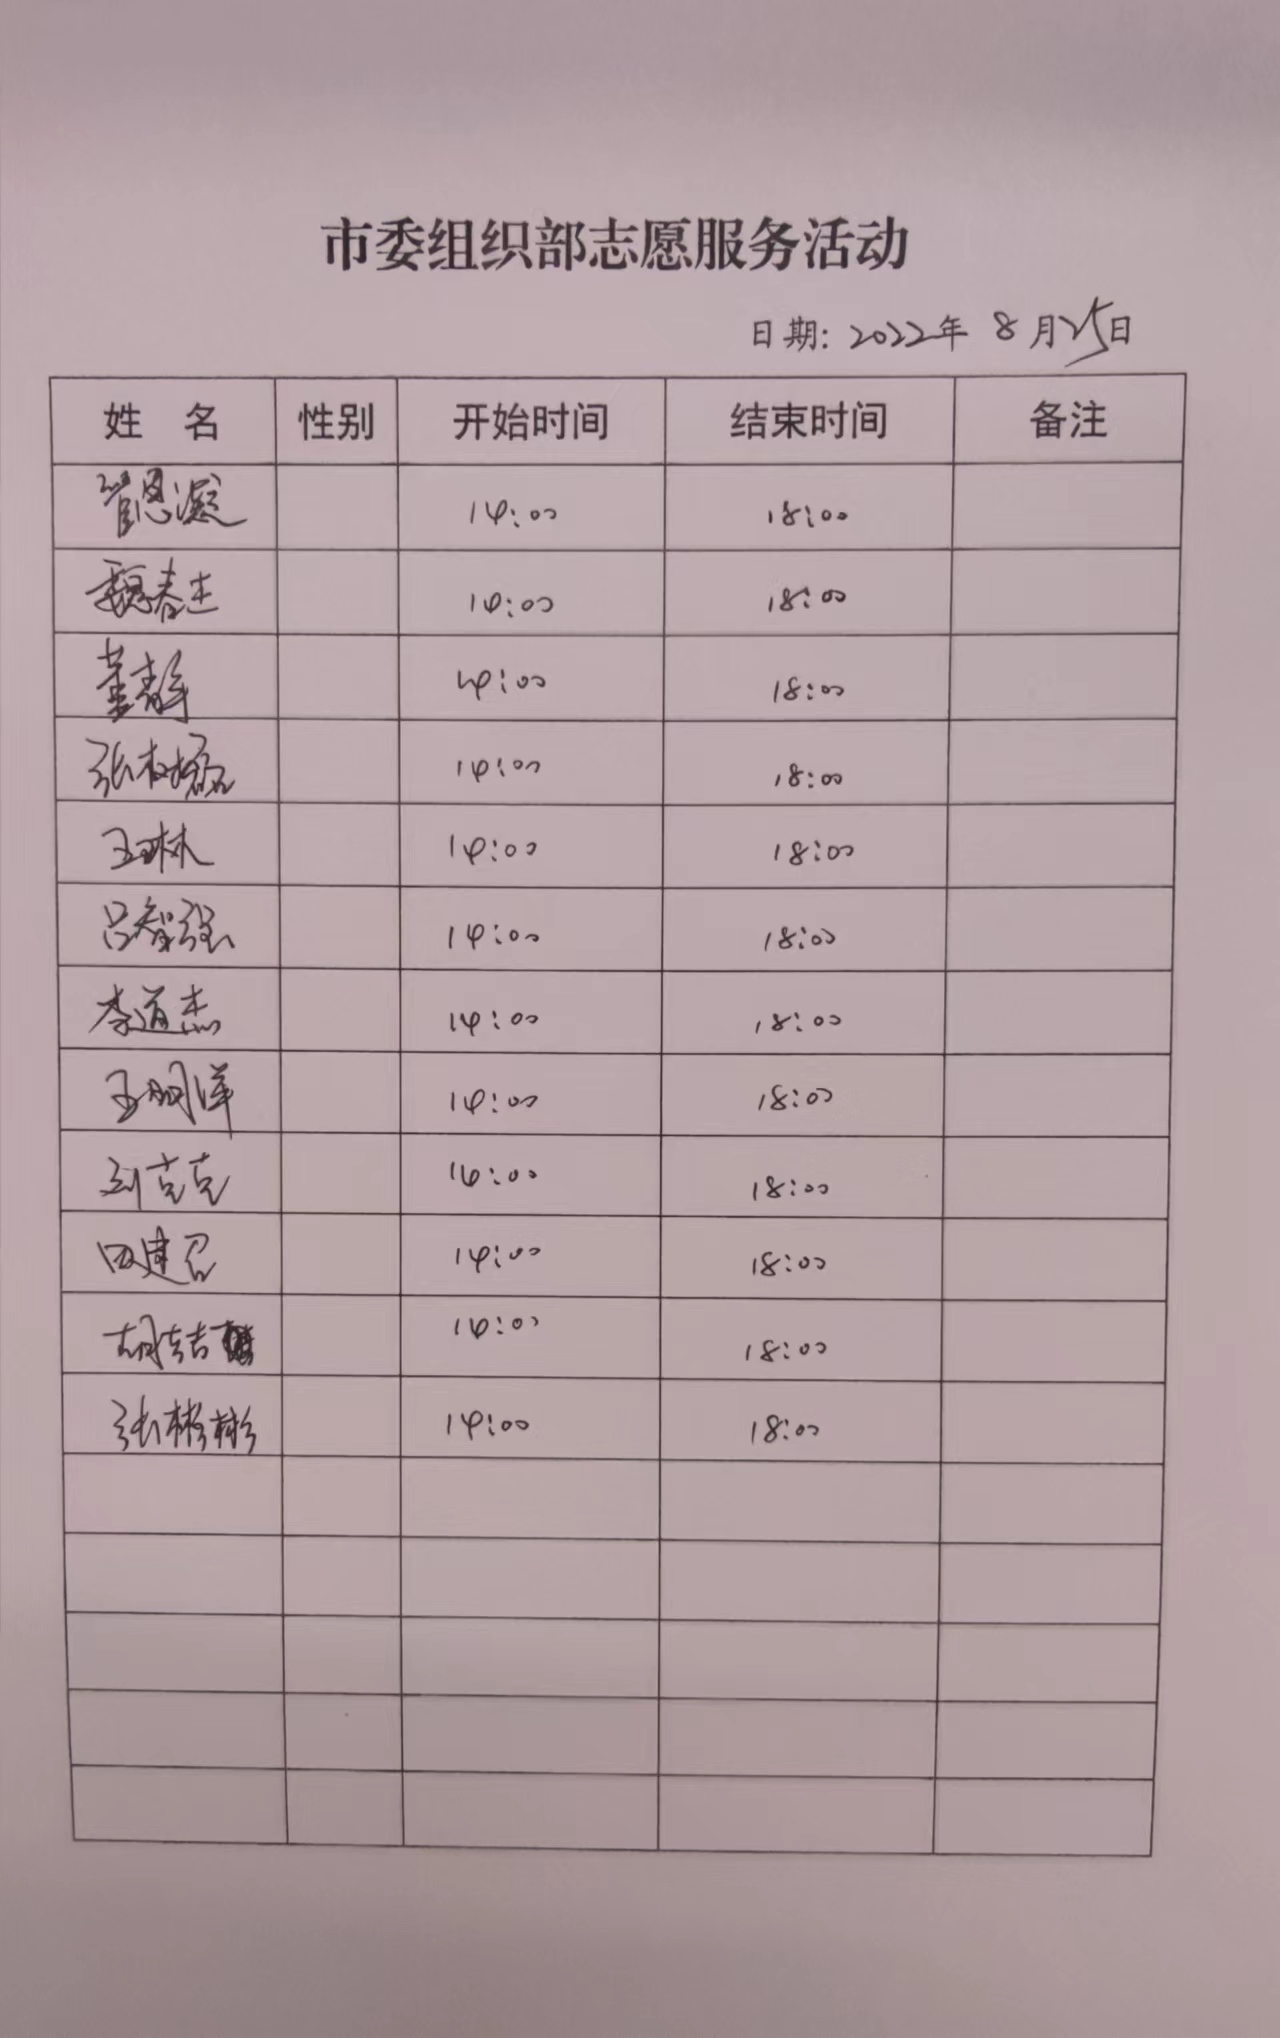 市委组织部志愿服务活动
日期: 2022年 8月25日
姓 名 性别 开始时间 结束时间 备注
管恩凝 14:00 18:00
魏春 14:00 18:00
董静 14:00 18:00
张 14:00 18:00
王琳 14:00 18:00
吕智强 14:00 18:00
李道杰 14:00 18:00
王朋洋 14:00 18:00
刘克克 14:00 18:00
田建召 14:00 18:00
胡 14:00 18:00
张彬彬 14:00 18:00